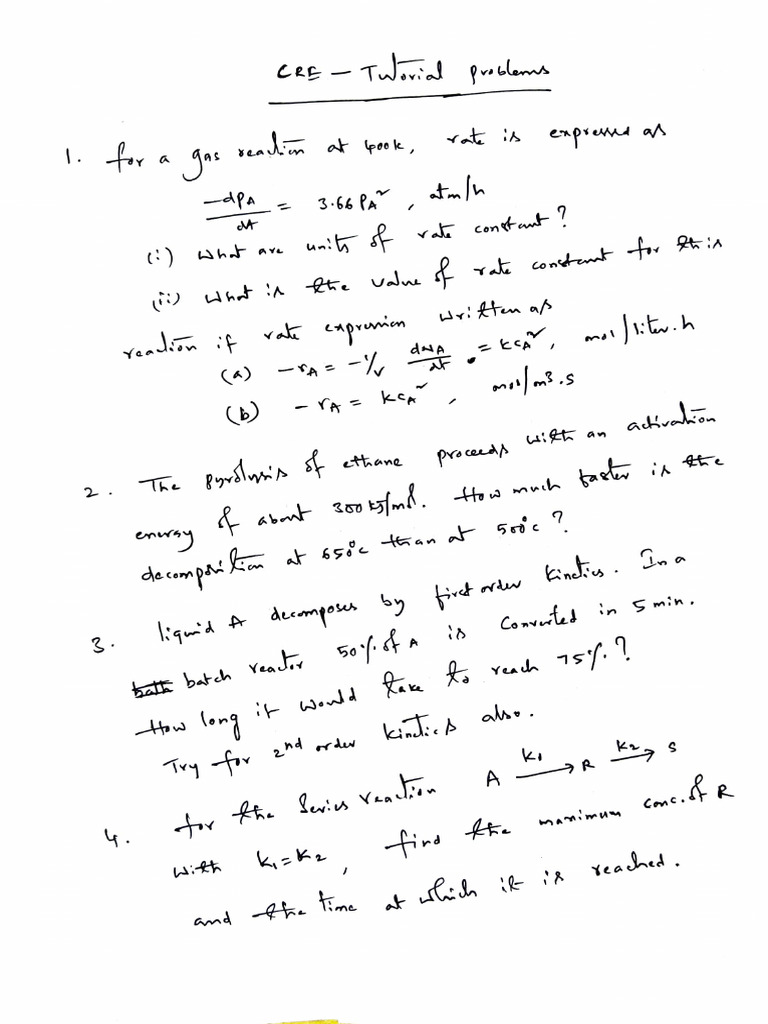 CRE - Tutorial problems
1. for a gas reaction at 400K, rate is expressed as
-dPA/dt = 3.66 PA², atm/h
(i) What are units of rate constant?
(ii) What is the value of rate constant for this
reaction if rate expression written as
(a) -rA = -1/V dNA/dt = kCA², mol/liter.h
(b) -rA = kCA², mol/m³.s
2. The pyrolysis of ethane proceeds with an activation
energy of about 300 kJ/mol. How much faster is the
decomposition at 650°C than at 500°C?
3. liquid A decomposes by first order kinetics. In a
batch reactor 50% of A is converted in 5 min.
How long it would take to reach 75%?
Try for 2nd order kinetics also.
4. for the series reaction A —k1→ R —k2→ S
with k1=k2, find the maximum conc. of R
and the time at which it is reached.